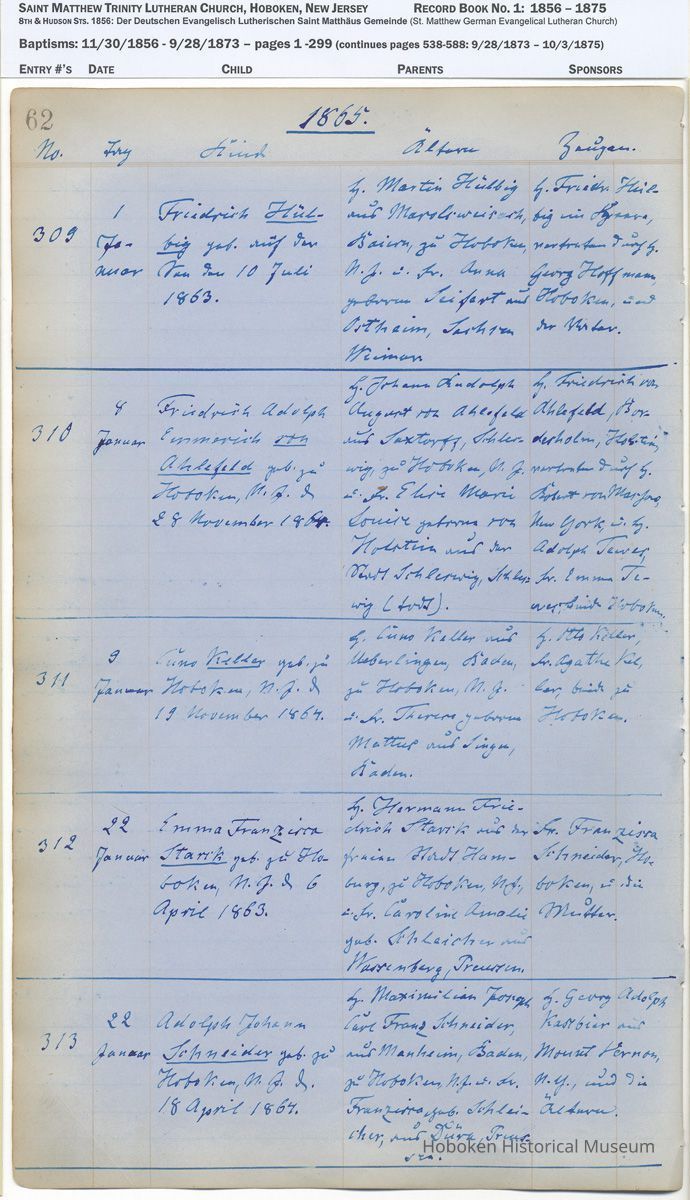 SAINT MATTHEW TRINITY LUTHERAN CHURCH, HOBOKEN, NEW JERSEY RECORD BOOK NO. 1: 1856 – 1875
8TH & HUDSON STS. 1856: Der Deutschen Evangelisch Lutherischen Saint Matthäus Gemeinde (St. Matthew German Evangelical Lutheran Church)
Baptisms: 11/30/1856 - 9/28/1873 – pages 1 -299 (continues pages 538-588: 9/28/1873 – 10/3/1875)
ENTRY #'S DATE CHILD PARENTS SPONSORS
62
1865.
No. Tag Kind Ältern Zeugen.
309
1
Ja-
nuar
Friedrich Hül-
big geb. auf der
See den 10 Juli
1863.
H. Martin Hülbig
aus
Baiern, zu Hoboken,
N.J. u. Fr. Anna
geborene Seifart aus
Ostheim, Sachsen
Weimar
H. Friedr. Hül-
big in
vertreten durch H.
Georg Hoffmann,
Hoboken, und
der Vater.
310
8
Januar
Friedrich Adolph
Emmerich von
Ahlefeld geb. zu
Hoboken, N.J. d.
28 November 1864.
H. Johann Rudolph
August von Ahlefeld
aus Saxtorff, Schles-
wig, zu Hoboken, N.J.
u. Fr. Elise Marie
Louise geborene von
Holstein aus der
Stadt Schleswig, Schles-
wig (todt).
H. Friedrich von
Ahlefeld, Bor-
desholm, Holstein
vertreten durch H.
Robert von
New York, u. H.
Adolph Tewes,
Fr. Emma Te-
wes, beide Hoboken.
311
9
Januar
Cuno Keller geb. zu
Hoboken, N.J. d.
19 November 1864.
H. Cuno Keller aus
Ueberlingen, Baden,
zu Hoboken, N.J.
u. Fr. Therese geborene
Mattes aus Singen,
Baden.
H. Otto Keller,
Fr. Agathe Kel-
ler, beide zu
Hoboken.
312
22
Januar
Emma Franzisca
Starik geb. zu Ho-
boken, N.J. d. 6
April 1863.
H. Hermann Frie-
drich Starik aus der
freien Stadt Ham-
burg, zu Hoboken, N.J.,
u. Fr. Caroline Amalie
geb. Schleicher aus
Wassenberg, Preussen.
Fr. Franzisca
Schneider, Ho-
boken, u. die
Mutter.
313
22
Januar
Adolph Johann
Schneider geb. zu
Hoboken, N.J. d.
18 April 1864.
H. Maximilian Joseph
Carl Franz Schneider,
aus Manheim, Baden,
zu Hoboken, N.J. u. Fr.
Franzisca geb. Schlei-
cher, aus Düra, Preus-
sen.
H. Georg Adolph
Kastbier aus
Mount Vernon,
N.Y., und die
Ältern.
Hoboken Historical Museum